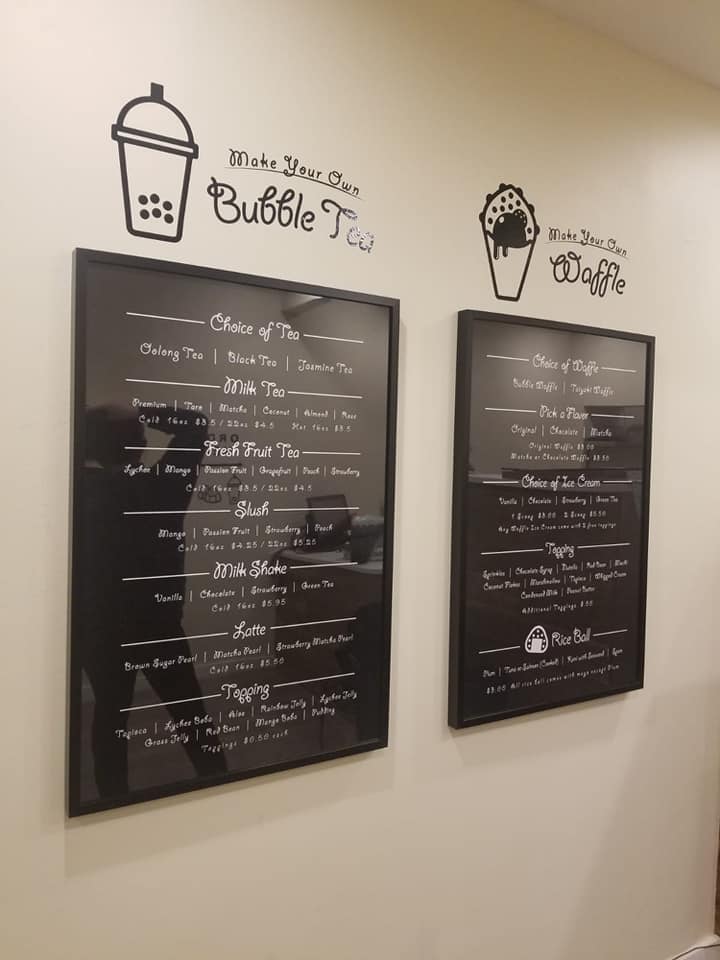 Make Your Own
Bubble Tea
Choice of Tea
Oolong Tea | Black Tea | Jasmine Tea
Milk Tea
Premium | Taro | Matcha | Coconut | Almond | Rose
Cold 16oz $3.5 / 22oz $4.5 Hot 16oz $3.5
Fresh Fruit Tea
Lychee | Mango | Passion Fruit | Grapefruit | Peach | Strawberry
Cold 16oz $3.5 / 22oz $4.5
Slush
Mango | Passion Fruit | Strawberry | Peach
Cold 16oz $4.25 / 22oz $5.25
Milk Shake
Vanilla | Chocolate | Strawberry | Green Tea
Cold 16oz $5.95
Latte
Brown Sugar Pearl | Matcha Pearl | Strawberry Matcha Pearl
Cold 16oz $5.50
Topping
Tapioca | Lychee Boba | Aloe | Rainbow Jelly | Lychee Jelly
Grass Jelly | Red Bean | Mango Boba | Pudding
Toppings $0.50 each
Make Your Own
Waffle
Choice of Waffle
Bubble Waffle | Taiyaki Waffle
Pick a Flavor
Original | Chocolate | Matcha
Original Waffle $3.00
Matcha or Chocolate Waffle $3.50
Choice of Ice Cream
Vanilla | Chocolate | Strawberry | Green Tea
1 Scoop $3.00 2 Scoop $5.50
Any Waffle Ice Cream come with 2 free toppings
Topping
Sprinkles | Chocolate Syrup | Nutella | Red Bean | Mochi
Coconut Flakes | Marshmallow | Tapioca | Whipped Cream
Condensed Milk | Peanut Butter
Additional Toppings $.50
Rice Ball
Plum | Tuna or Salmon (Cooked) | Kani with Seaweed | Spam
$3.00 All rice ball comes with mayo except Plum